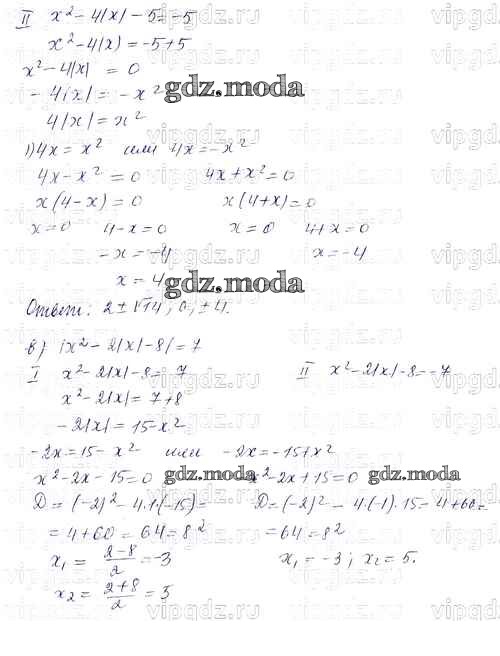 II x² - 4|x| - 5 = -5
x² - 4|x| = -5 + 5
x² - 4|x| = 0
- 4|x| = - x²
gdz.moda
4|x| = x²
1) 4x = x² или 4x = -x²
4x - x² = 0 4x + x² = 0
x(4-x) = 0 x(4+x) = 0
x = 0 4-x = 0 x = 0 4+x = 0
-x = -4 x = -4
x = 4
gdz.moda
Ответ: 2 ± √14; 0; ±4.
в) |x² - 2|x| - 8| = 7
I x² - 2|x| - 8 = 7 II x² - 2|x| - 8 = -7
x² - 2|x| = 7 + 8
- 2|x| = 15 - x²
-2x = 15 - x² или -2x = -15 + x²
x² - 2x - 15 = 0 gdz.moda x² - 2x + 15 = 0 gdz.moda
D = (-2)² - 4·1·(-15) = D = (-2)² - 4·(-1)·15 = 4 + 60 =
= 4 + 60 = 64 = 8² = 64 = 8²
x₁ = (2-8)/2 = -3 x₁ = -3; x₂ = 5.
x₂ = (2+8)/2 = 5
vipgdz.ru